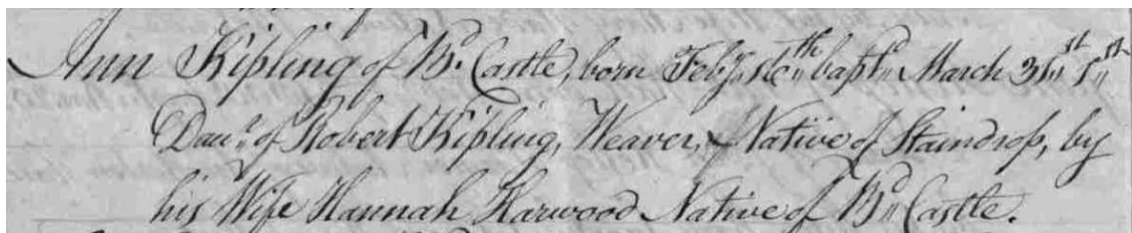 Ann Kipling of Bd. Castle, born Feby. 16th bapt. March 31st 1st
Daur. of Robert Kipling, Weaver, Native of Staindrop, by
his Wife Hannah Harwood Native of Bd. Castle.